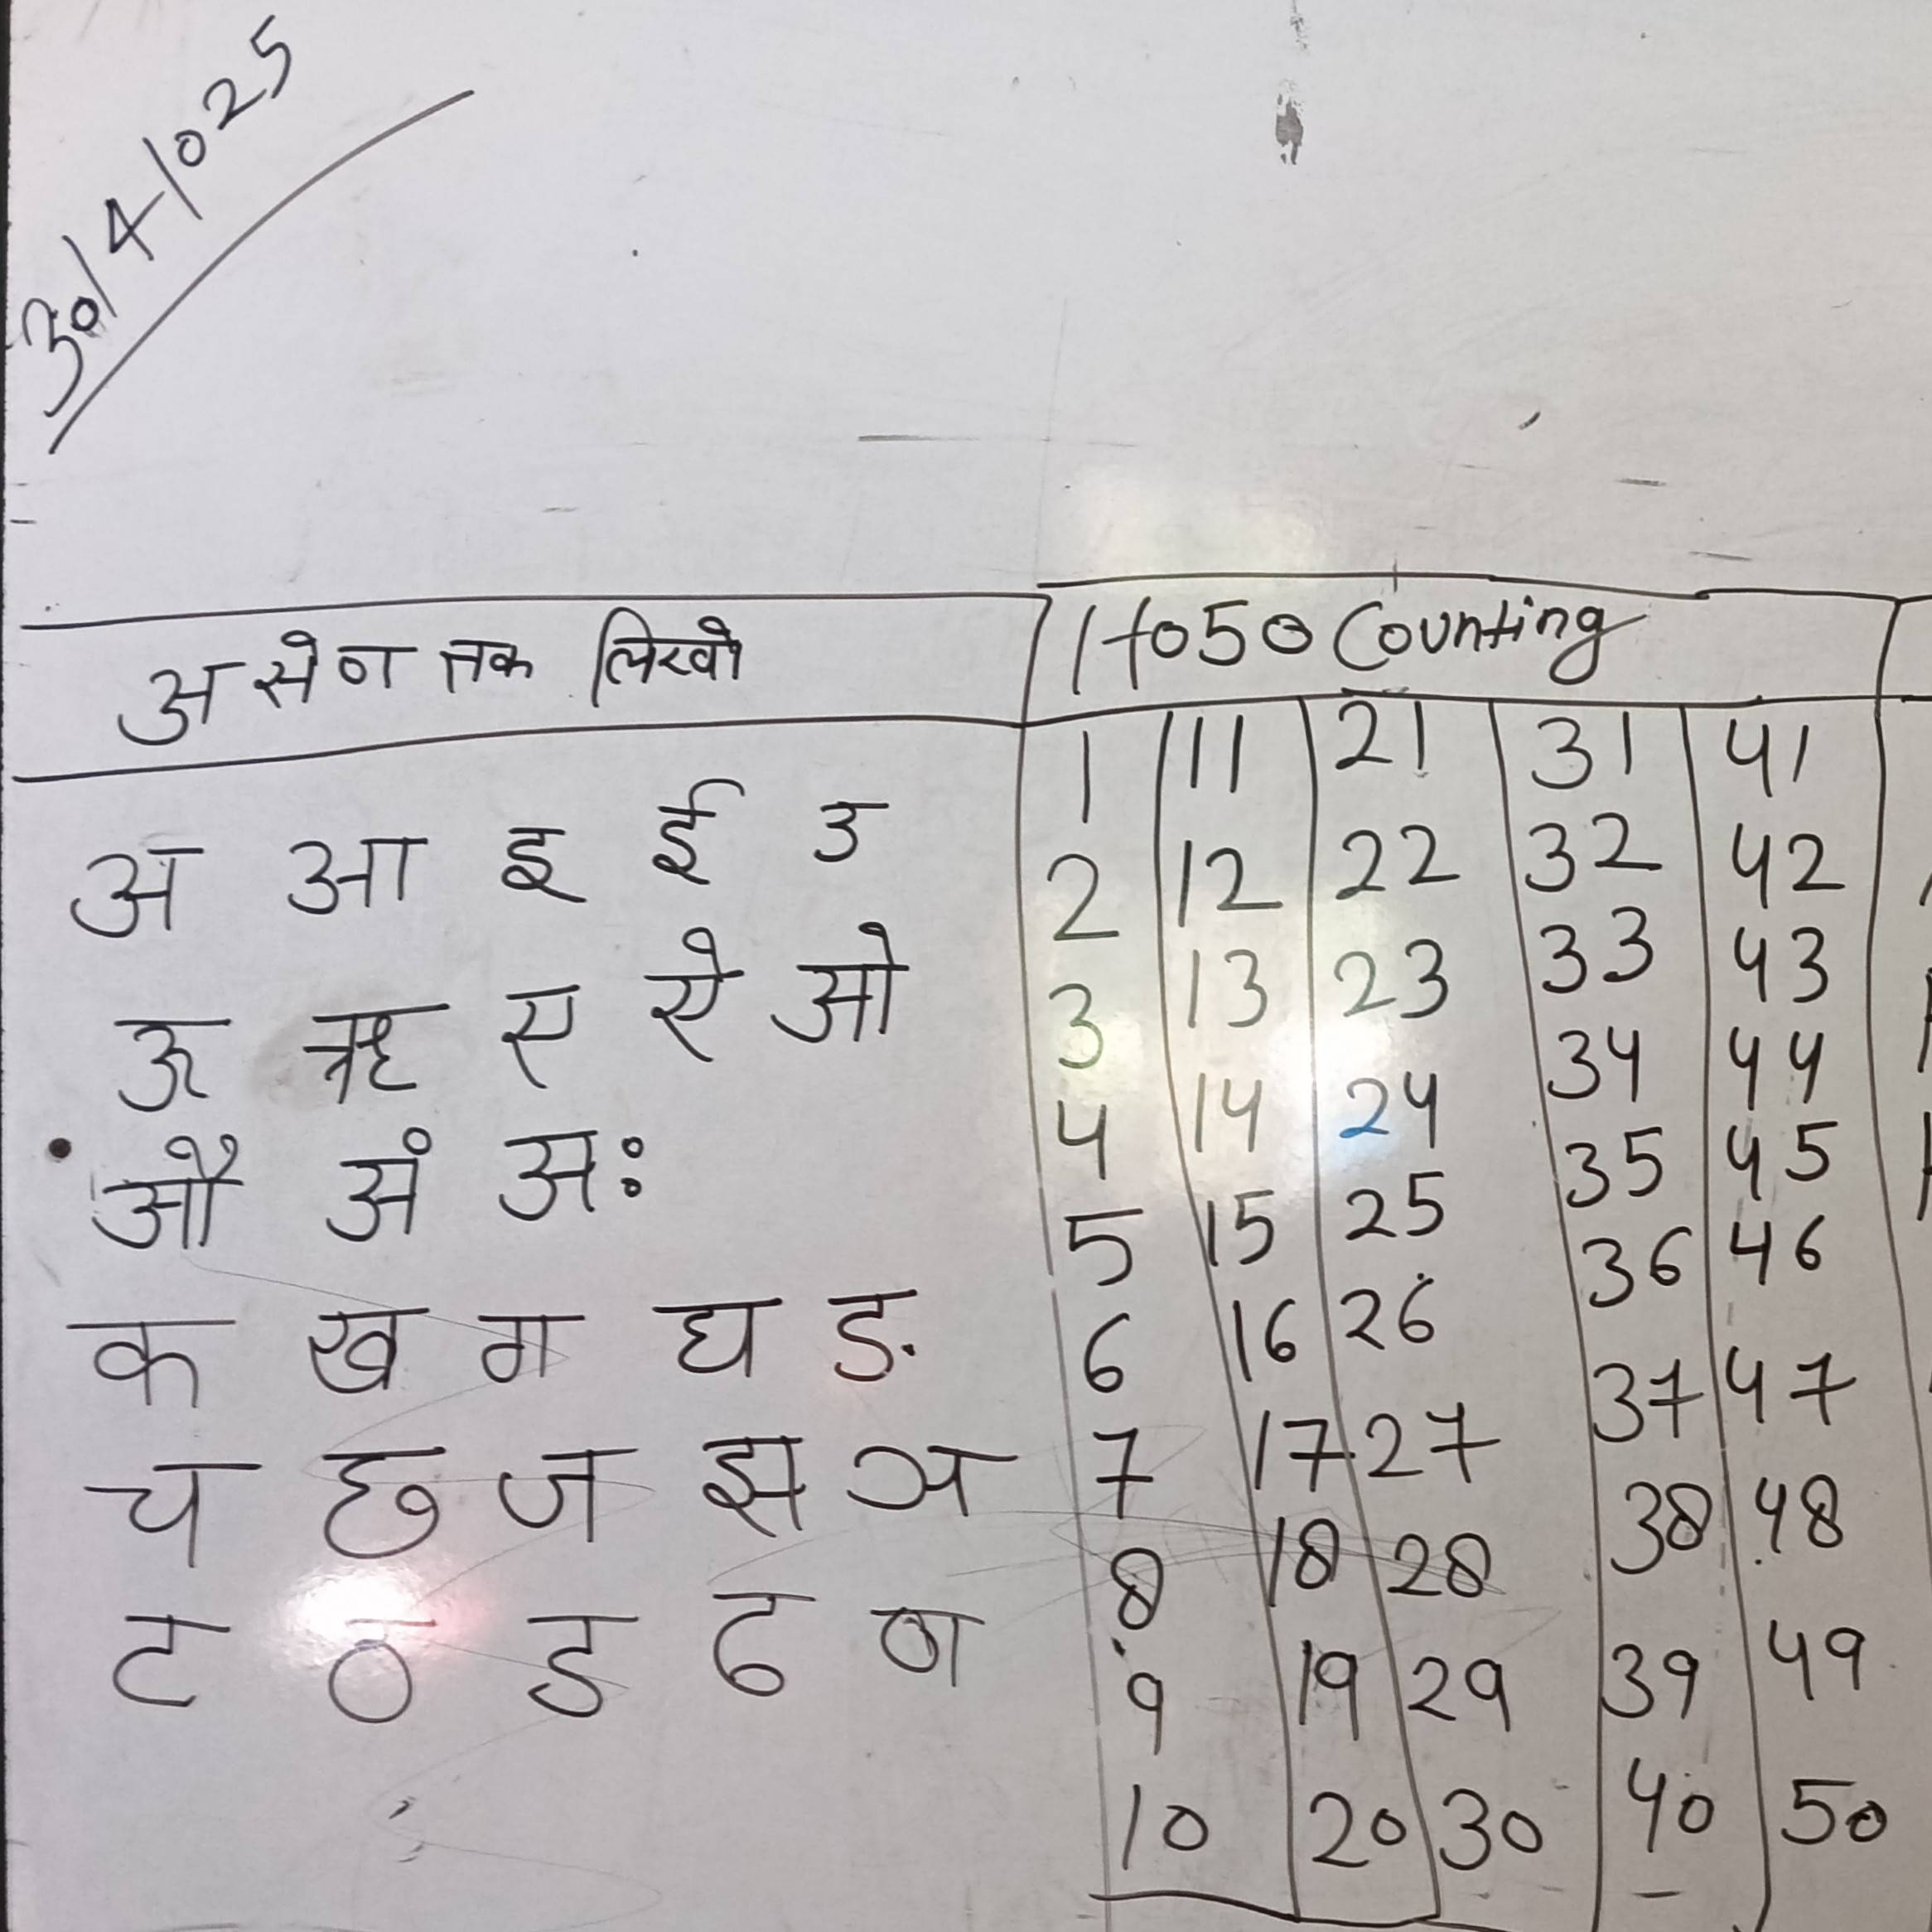 30/4/025
अ से ण तक लिखो
अ आ इ ई उ
ऊ ऋ ए ऐ ओ
औ अं अः
क ख ग घ ङ
च छ ज झ ञ
ट ठ ड ढ ण
1 to 50 Counting
1 11 21 31 41
2 12 22 32 42
3 13 23 33 43
4 14 24 34 44
5 15 25 35 45
6 16 26 36 46
7 17 27 37 47
8 18 28 38 48
9 19 29 39 49
10 20 30 40 50